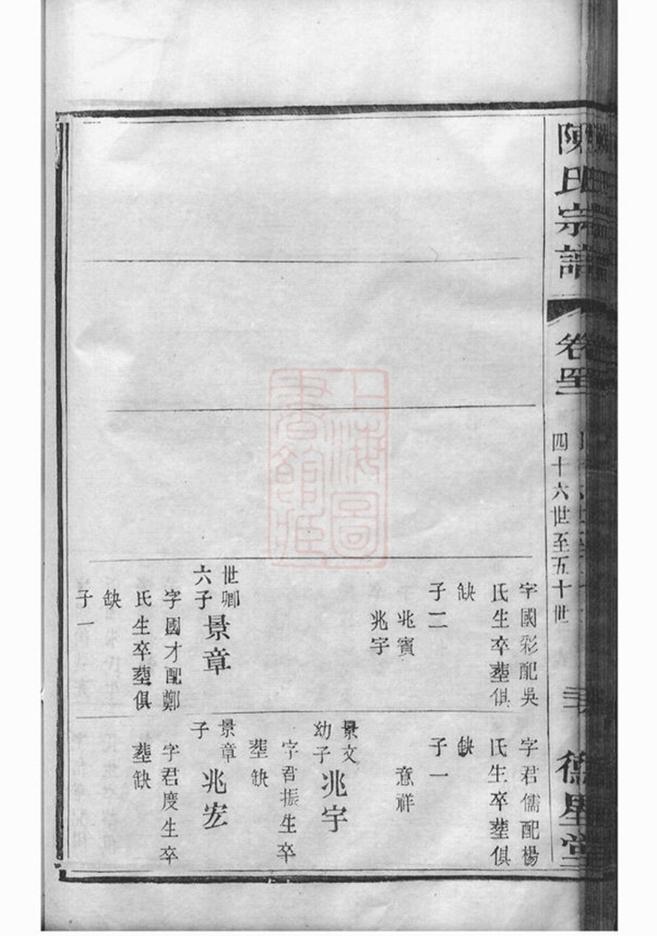 陳氏宗譜
四十六世至五十世
德星堂
字國彩配吳
氏生卒塟俱
缺
子二
兆賓
兆宇
世卿
六子
景章
字國才配鄭
氏生卒塟俱
缺
子一
字君儒配楊
氏生卒塟俱
缺
子一
意祥
景文
幼子
兆宇
字君振生卒
塟缺
景章
子
兆宏
字君度生卒
塟缺
上海圖書館藏